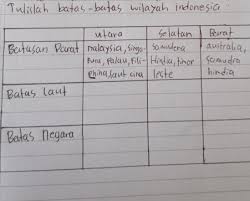 Tulislah batas-batas wilayah indonesia
utara selatan Barat
Batasan Darat malaysia, singa- samudera australia,
pura, palau, fili- Hindia, timor samudra
phina, laut cina leste hindia
Batas laut
Batas negara